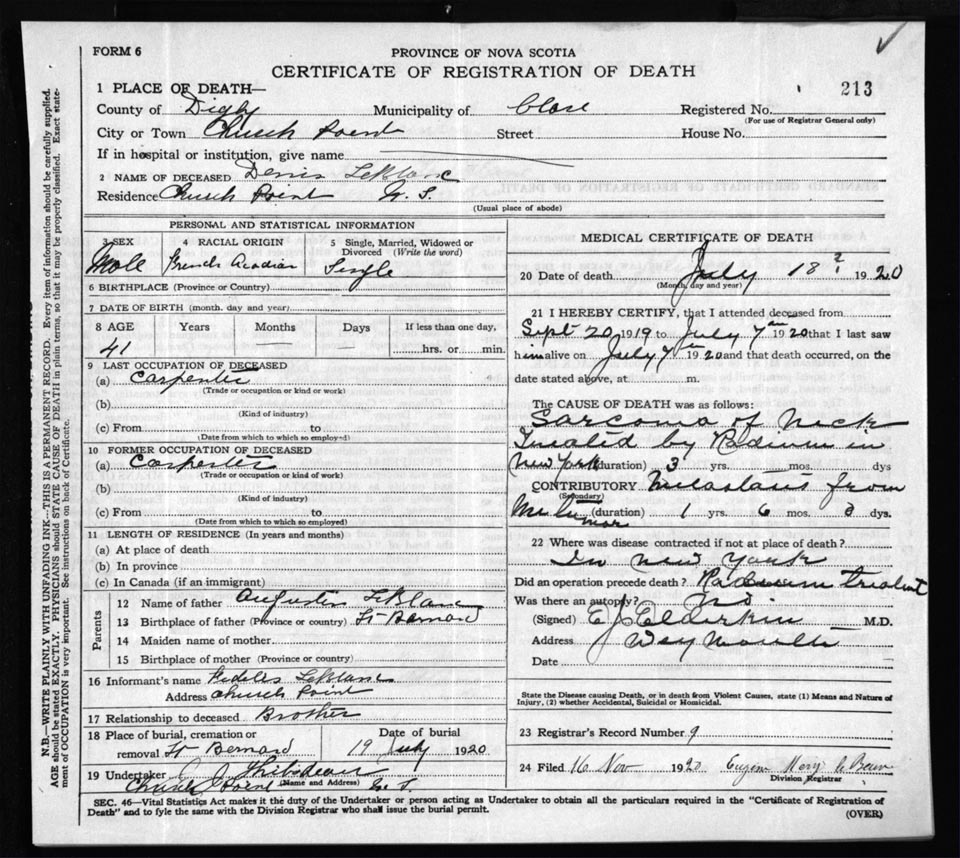 FORM 6
PROVINCE OF NOVA SCOTIA
CERTIFICATE OF REGISTRATION OF DEATH
213
1 PLACE OF DEATH—
County of Digby Municipality of Clare Registered No.
(For use of Registrar General only)
City or Town Church Point Street House No.
If in hospital or institution, give name
2 NAME OF DECEASED Denis LeBlanc
Residence Church Point N. S.
(Usual place of abode)
PERSONAL AND STATISTICAL INFORMATION
3 SEX 4 RACIAL ORIGIN 5 Single, Married, Widowed or Divorced (Write the word)
Male French Acadian Single
6 BIRTHPLACE (Province or Country)
7 DATE OF BIRTH (month. day and year)
8 AGE Years Months Days If less than one day,
41 — — hrs. or min.
9 LAST OCCUPATION OF DECEASED
(a) Carpenter
(Trade or occupation or kind or work)
(b)
(Kind of industry)
(c) From to
(Date from which to which so employed)
10 FORMER OCCUPATION OF DECEASED
(a) Carpenter
(Trade or occupation or kind of work)
(b)
(Kind of industry)
(c) From to
(Date from which to which so employed)
11 LENGTH OF RESIDENCE (In years and months)
(a) At place of death
(b) In province
(c) In Canada (if an immigrant)
Parents
12 Name of father Augustin LeBlanc
13 Birthplace of father (Province or country) St Bernard
14 Maiden name of mother
15 Birthplace of mother (Province or country)
16 Informant's name Fidelis LeBlanc
Address Church Point
17 Relationship to deceased Brother
18 Place of burial, cremation or removal St Bernard Date of burial 19 July 1920
19 Undertaker Thibideau
(Name and Address)
Church Point N. S.
MEDICAL CERTIFICATE OF DEATH
20 Date of death July 18 ? 1920
(Month, day and year)
21 I HEREBY CERTIFY, that I attended deceased from
Sept 20 1919 to July 7 1920 that I last saw
him alive on July 7 1920 and that death occurred, on the
date stated above, at m.
The CAUSE OF DEATH was as follows:
Sarcoma of Neck
Treated by Radium in
New York (duration) 3 yrs. mos. dys
CONTRIBUTORY Metastasis from
(Secondary)
tumor (duration) 1 yrs. 6 mos. dys.
22 Where was disease contracted if not at place of death?
In New York
Did an operation precede death? Radium
Was there an autopsy? No
(Signed) E J Elderkin M.D.
Address Weymouth
Date
State the Disease causing Death, or in death from Violent Causes, state (1) Means and Nature of
Injury, (2) whether Accidental, Suicidal or Homicidal.
23 Registrar's Record Number 9
24 Filed 16 Nov 1920
Division Registrar
SEC. 46—Vital Statistics Act makes it the duty of the Undertaker or person acting as Undertaker to obtain all the particulars required in the "Certificate of Registration of
Death" and to fyle the same with the Division Registrar who shall issue the burial permit.
(OVER)
N.B.—WRITE PLAINLY WITH UNFADING INK—THIS IS A PERMANENT RECORD. Every item of information should be carefully supplied.
AGE should be stated EXACTLY. PHYSICIANS should STATE CAUSE OF DEATH in plain terms, so that it may be properly classified. Exact state-
ment of OCCUPATION is very important. See instructions on back of Certificate.